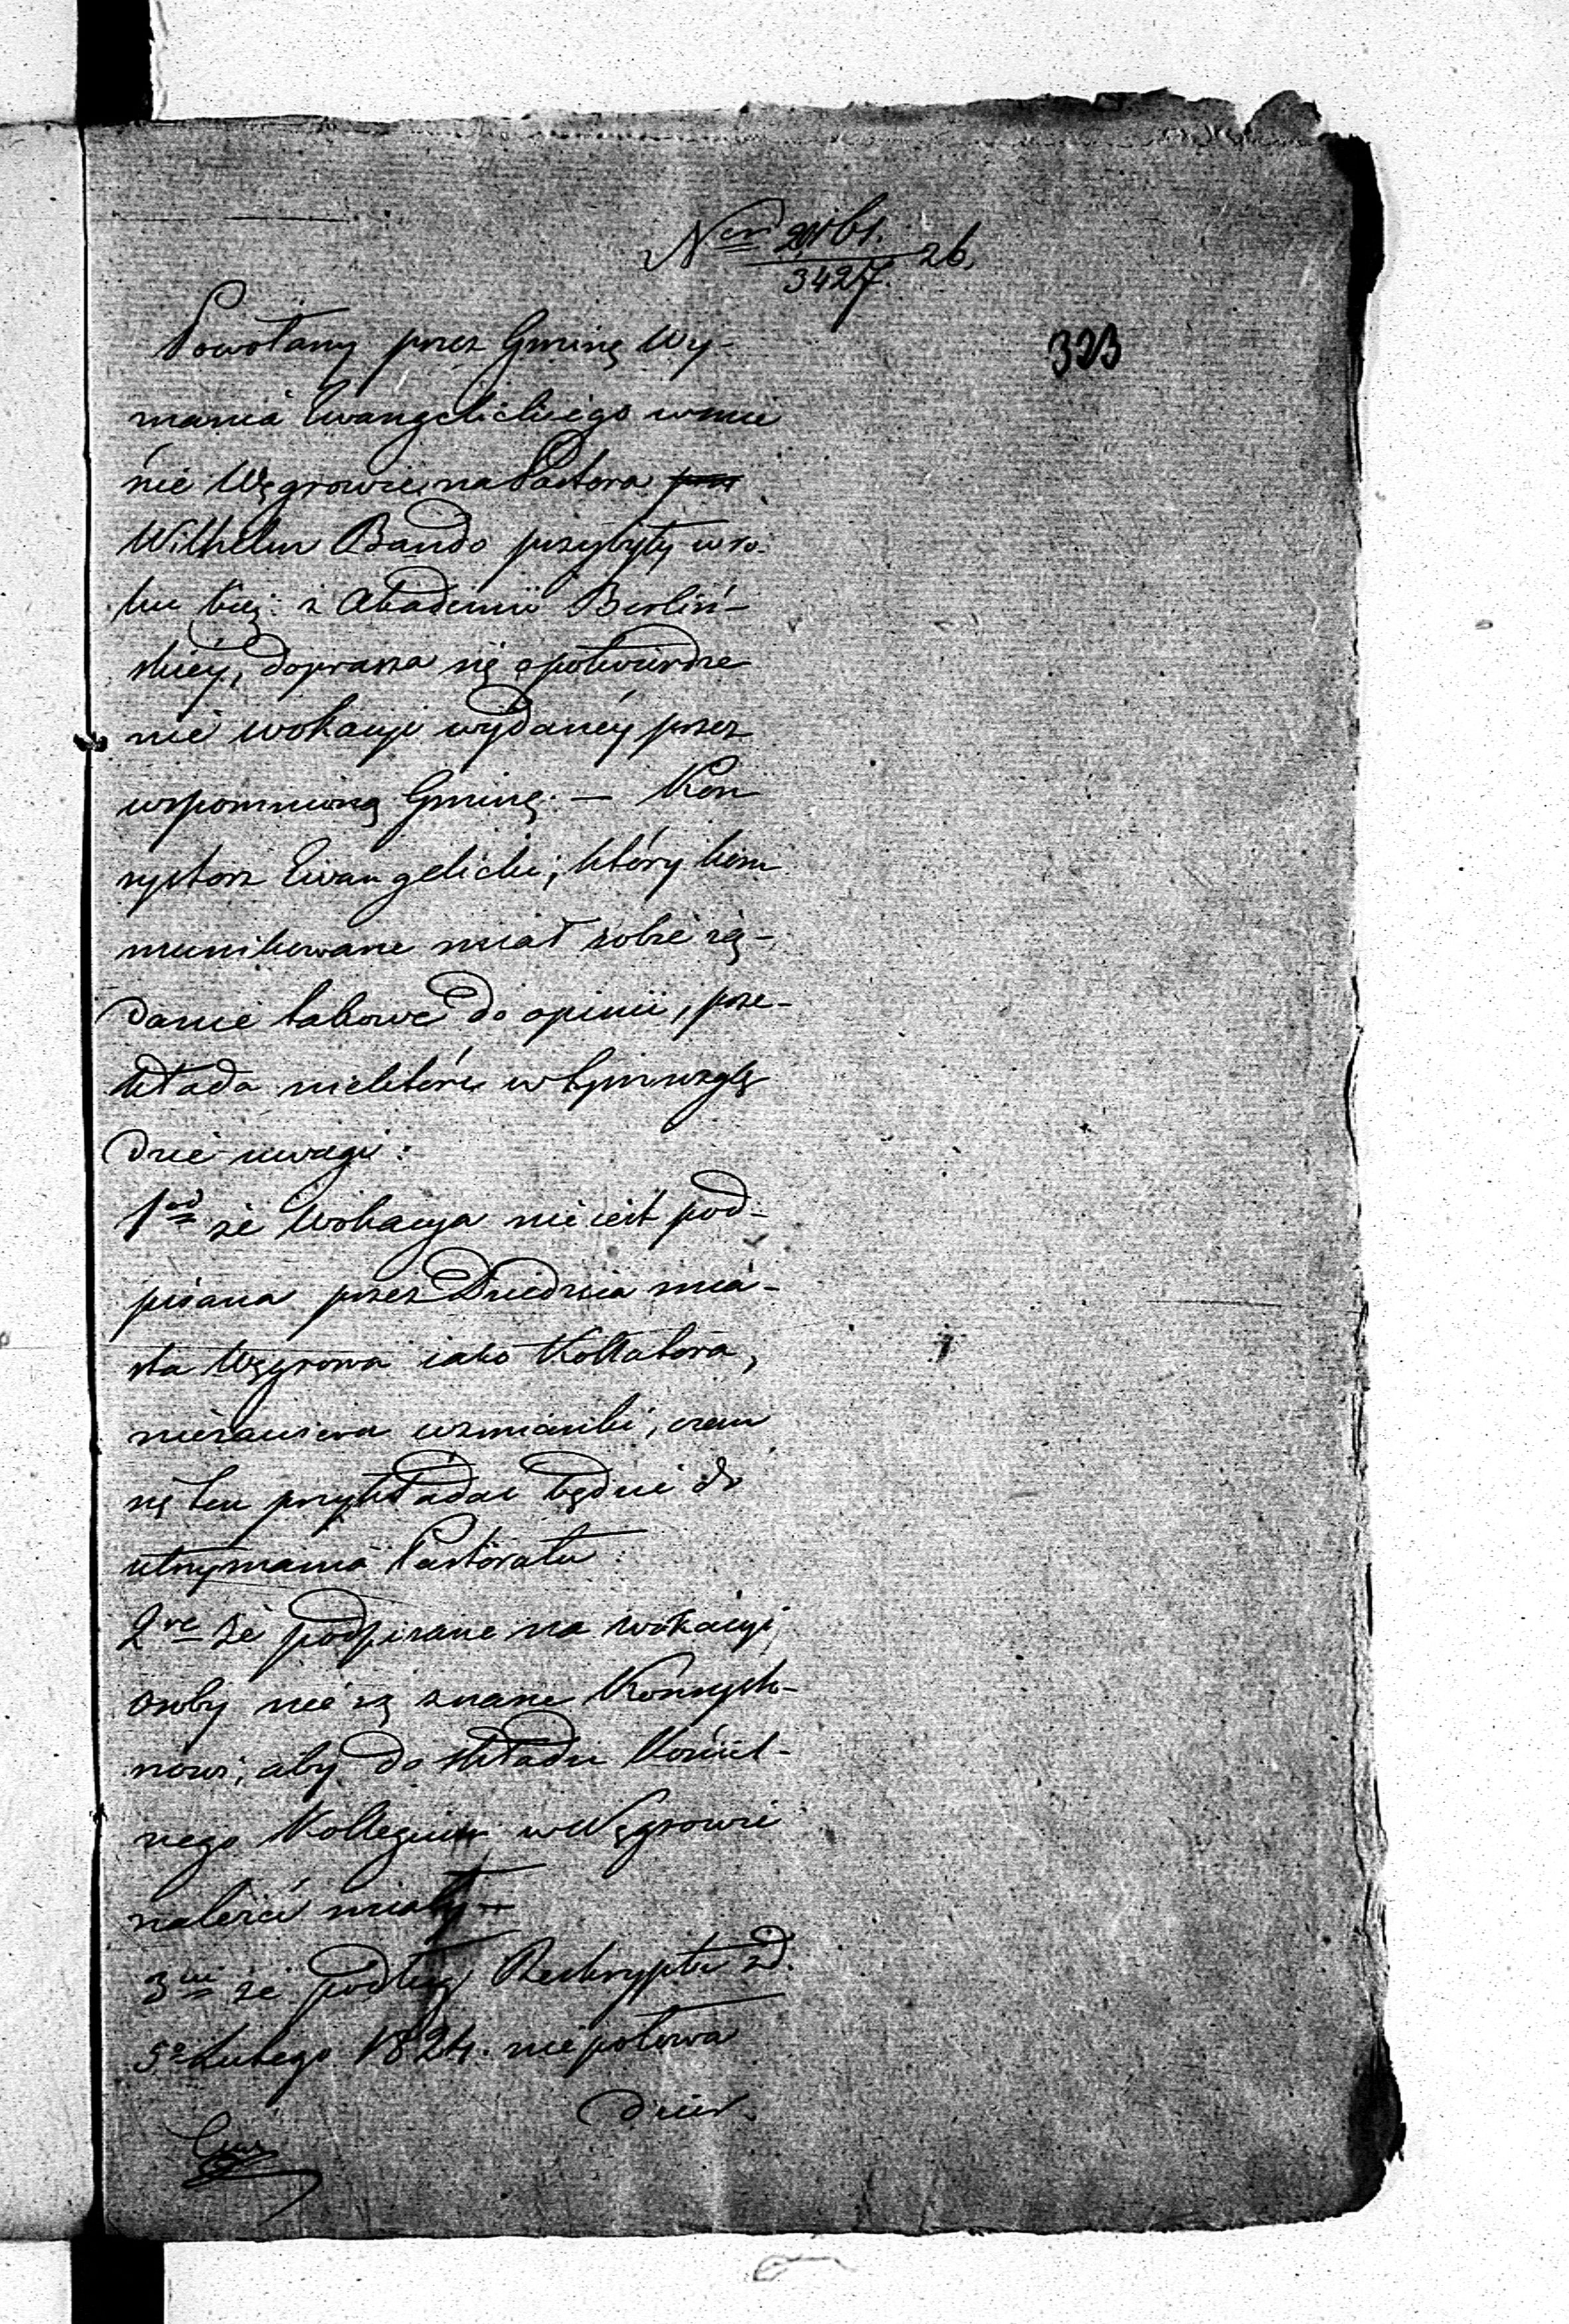 Nro 26.
3427.
323
Powołany przez Gminę Wy-
znania Ewangelickiego w mie
ście Węgrowie na Pastora
Wilhelm Bando przybyły w ro-
ku bież: z Akademii Berliń-
skiéy, doprasza się o potwierdze
nie wokacyi wydanéy przez
wspomnioną Gminę. — Kon
systorz Ewangelicki, który kom
munikowane miał sobie żą-
danie takowe do opinii, prze-
kłada niektóre w tym wzglę
dzie uwagi:
1od że Wokacya nie iest pod-
pisana przez Dziedzica mia-
sta Węgrowa iako Kollatora,
niezawiera wzmianki, czem
się ten przykładać będzie do
utrzymania Pastoratu
2re że podpisane na wokacyi
osoby nie są znane Konsysto-
rzowi, aby do składu Kościel-
nego Kollegium w Węgrowie
należeć miały
3cie że podług Reskryptu z d.
5o Lutego 1824. nie potwa
dzier